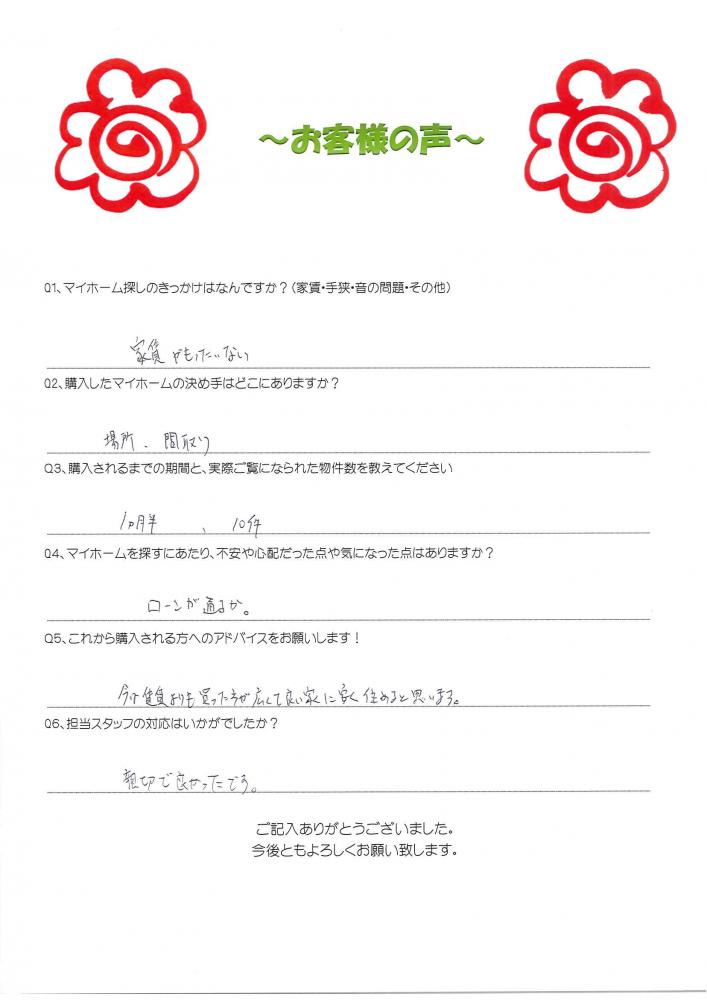 ～お客様の声～
Q1、マイホーム探しのきっかけはなんですか？（家賃・手狭・音の問題・その他）
家賃がもったいない
Q2、購入したマイホームの決め手はどこにありますか？
場所、間取り
Q3、購入されるまでの期間と、実際ご覧になられた物件数を教えてください
1ヵ月半、10件
Q4、マイホームを探すにあたり、不安や心配だった点や気になった点はありますか？
ローンが通るか。
Q5、これから購入される方へのアドバイスをお願いします！
今は賃貸よりも買った方が広くて良い家に安く住めると思います。
Q6、担当スタッフの対応はいかがでしたか？
親切で良かったです。
ご記入ありがとうございました。
今後ともよろしくお願い致します。